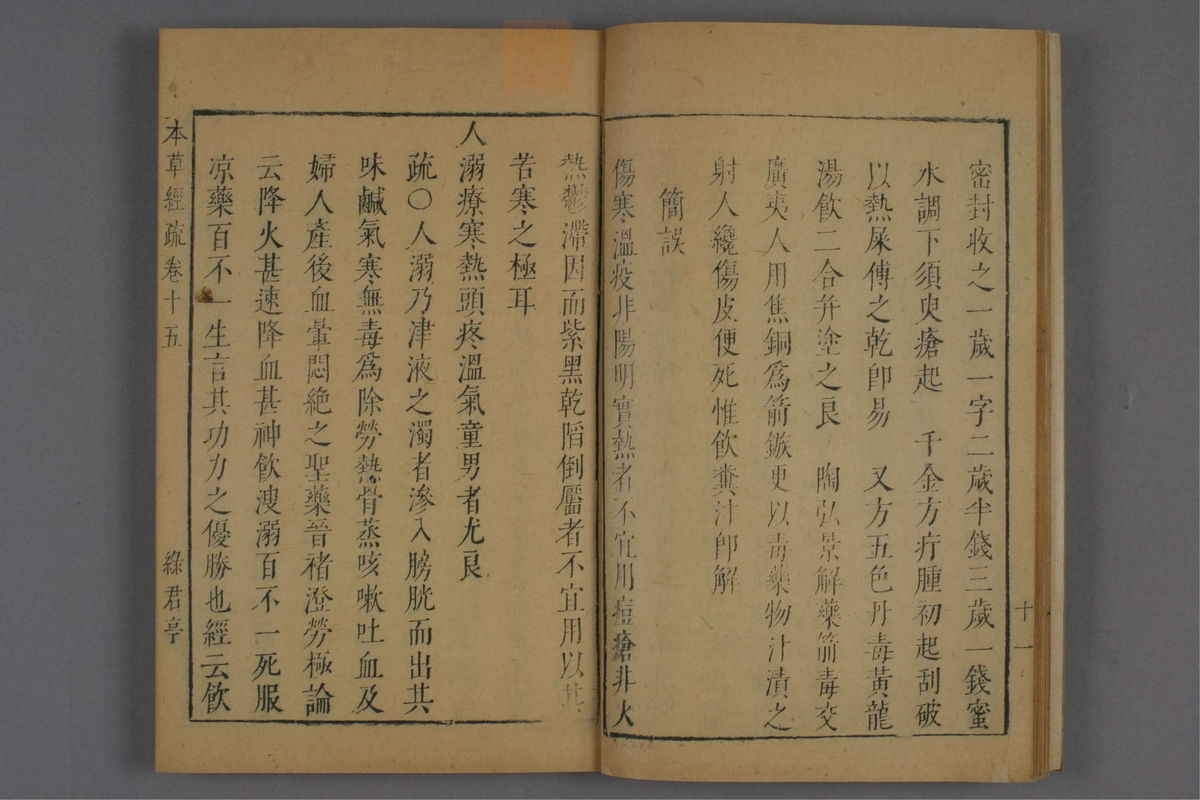 密封收之一歲一字二歲半錢三歲一錢蜜
水調下須臾瘡起 千金方疔腫初起刮破
以熱屎傅之乾即易 又方五色丹毒黃龍
湯飲二合弁塗之良 陶弘景解藥箭毒交
廣夷人用焦銅爲箭鏃更以毒藥物汁漬之
射人纔傷皮便死惟飲糞汁即解
簡誤
傷寒溫疫非陽明實熱者不宜用痘瘡非火
十一
熱鬱滯因而紫黑乾陷倒靨者不宜用以其
苦寒之極耳
人溺療寒熱頭疼溫氣童男者尤良
疏○人溺乃津液之濁者滲入膀胱而出其
味鹹氣寒無毒爲除勞熱骨蒸咳嗽吐血及
婦人產後血暈悶絶之聖藥晉褚澄勞極論
云降火甚速降血甚神飲溲溺百不一死服
凉藥百不一生言其功力之優勝也經云飲
本草經疏卷十五
綠君亭